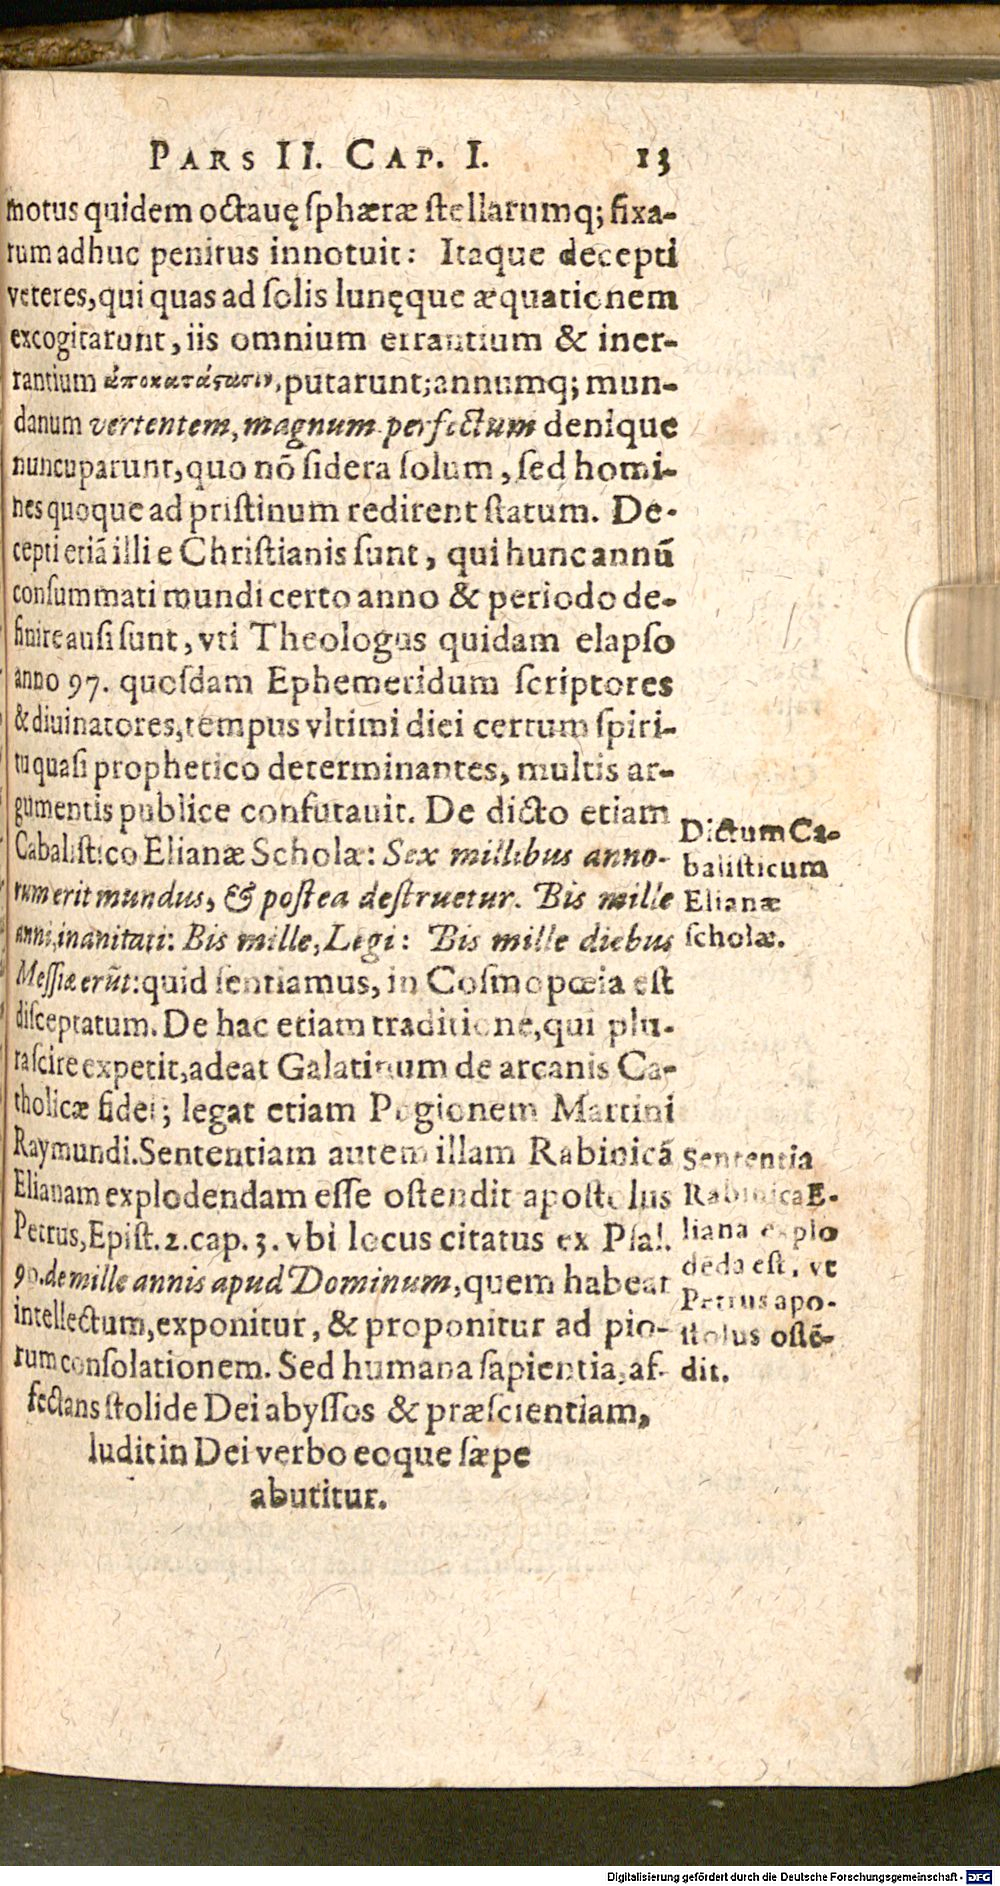 PARS II. CAP. I. 13
motus quidem octauę ſphæræ ſtellarumq; fixa-
rum adhuc penitus innotuit: Itaque decepti
veteres, qui quas ad ſolis lunęque æquationem
excogitarunt, iis omnium errantium & iner-
rantium ἀποκατάστασιν, putarunt; annumq; mun-
danum vertentem, magnum perfectum denique
nuncuparunt, quo nō ſidera ſolum, ſed homi-
nes quoque ad priſtinum redirent ſtatum. De-
cepti etiā illi e Chriſtianis ſunt, qui hunc annū
conſummati mundi certo anno & periodo de-
finire auſi ſunt, vti Theologus quidam elapſo
anno 97. quoſdam Ephemeridum ſcriptores
& diuinatores, tempus vltimi diei certum ſpiri-
tu quaſi prophetico determinantes, multis ar-
gumentis publice confutauit. De dicto etiam
Cabaliſtico Elianæ Scholæ: Sex millibus anno-
rum erit mundus, & poſtea deſtruetur. Bis mille
anni, inanitati: Bis mille, Legi: Bis mille diebus
Meſſiæ erūt: quid ſentiamus, in Coſmopœia eſt
diſceptatum. De hac etiam traditione, qui plu-
ra ſcire expetit, adeat Galatinum de arcanis Ca-
tholicæ fidei; legat etiam Pugionem Martini
Raymundi. Sententiam autem illam Rabinicā
Elianam explodendam eſſe oſtendit apoſtolus
Petrus, Epiſt. 2. cap. 3. vbi locus citatus ex Pſal.
90. de mille annis apud Dominum, quem habeat
intellectum, exponitur, & proponitur ad pio-
rum conſolationem. Sed humana ſapientia, af-
fectans ſtolide Dei abyſſos & præſcientiam,
ludit in Dei verbo eoque ſæpe
abutitur.
Dictum Ca-
baliſticum
Elianæ
ſcholæ.
Sententia
Rabinica E-
liana explo
dēda eſt, vt
Petrus apo-
ſtolus oſtē-
dit.
Digitalisierung gefördert durch die Deutsche Forschungsgemeinschaft - DFG